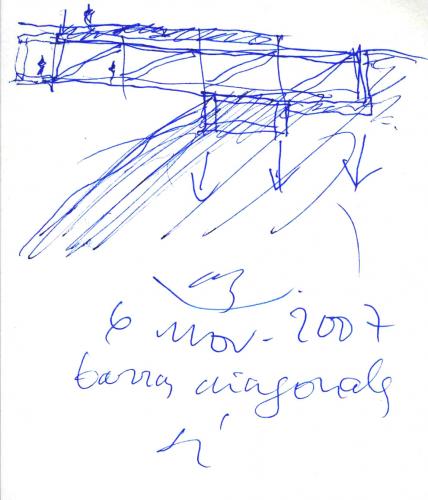 6 Nov. 2007
barras diagonals
sí